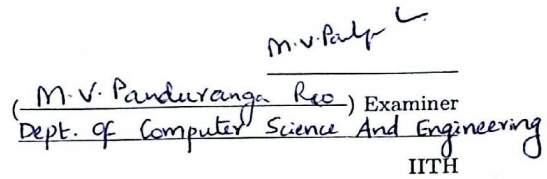 M.V.
(M.V. Panduranga Rao) Examiner
Dept. of Computer Science And Engineering
IITH